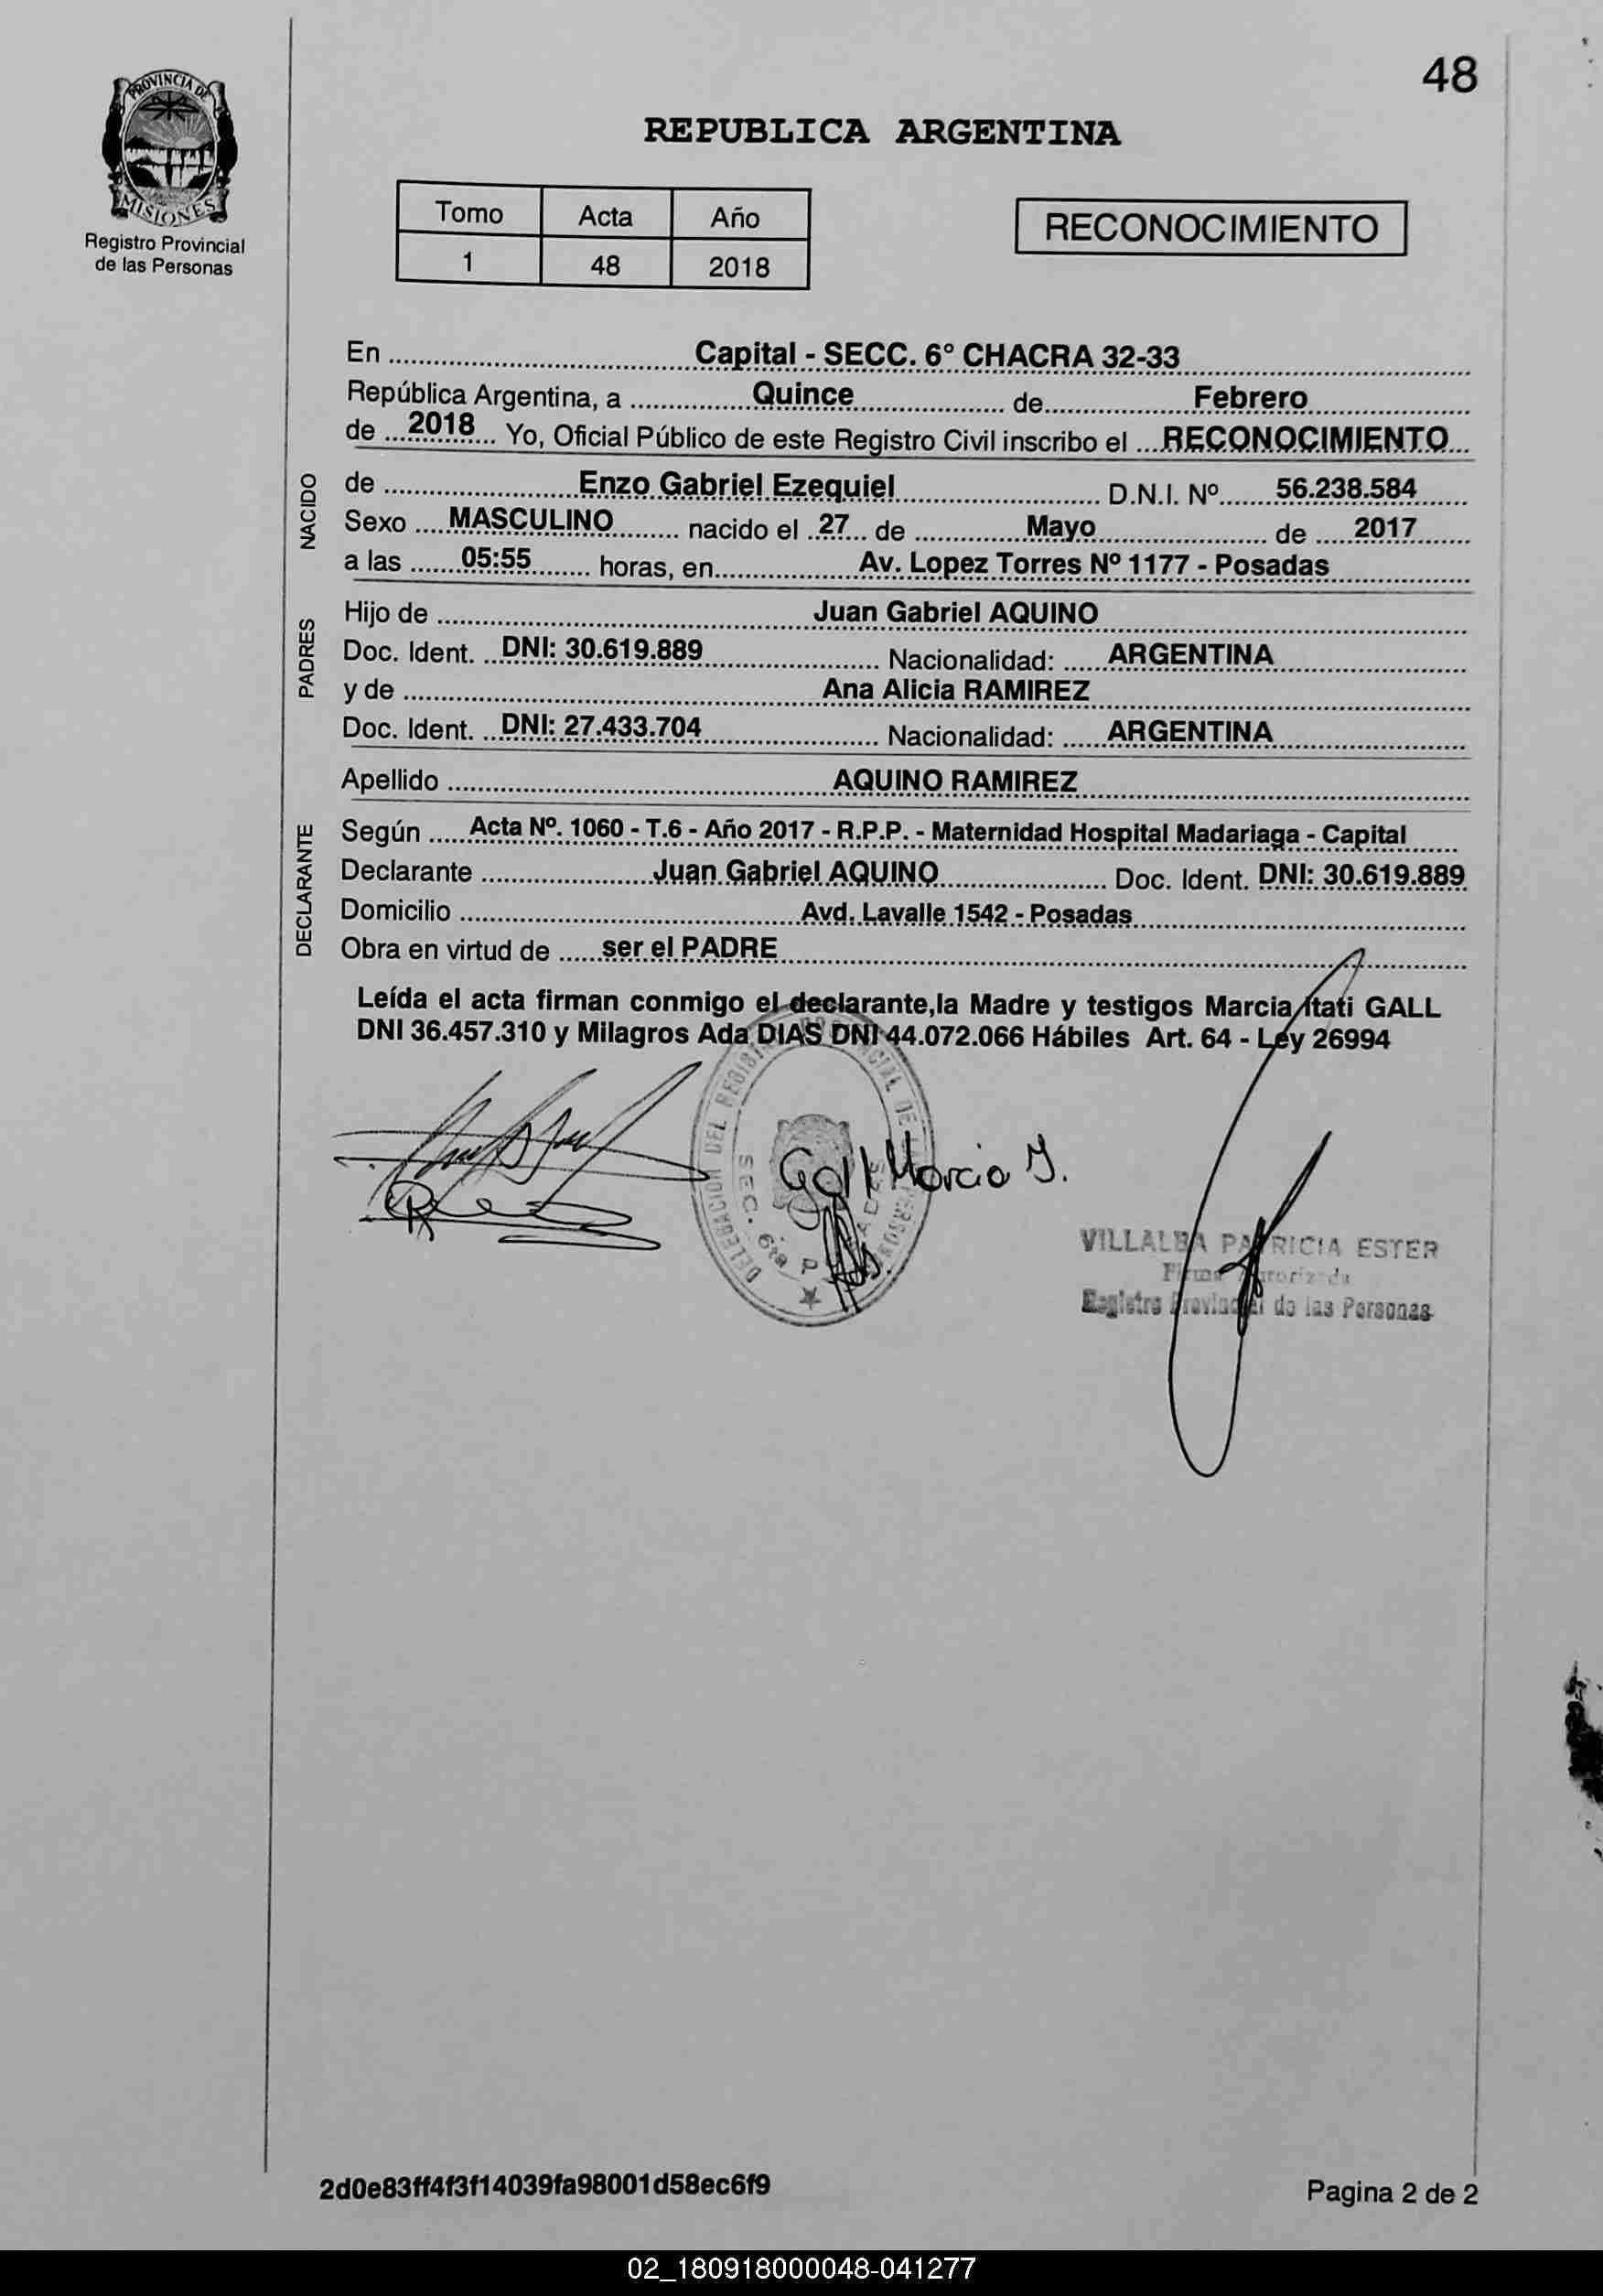 48
PROVINCIA DE
MISIONES
Registro Provincial
de las Personas
REPUBLICA ARGENTINA
Tomo Acta Año
1 48 2018
RECONOCIMIENTO
En Capital - SECC. 6° CHACRA 32-33
República Argentina, a Quince de Febrero
de 2018 Yo, Oficial Público de este Registro Civil inscribo el RECONOCIMIENTO
NACIDO
de Enzo Gabriel Ezequiel D.N.I. Nº 56.238.584
Sexo MASCULINO nacido el 27 de Mayo de 2017
a las 05:55 horas, en Av. Lopez Torres Nº 1177 - Posadas
PADRES
Hijo de Juan Gabriel AQUINO
Doc. Ident. DNI: 30.619.889 Nacionalidad: ARGENTINA
y de Ana Alicia RAMIREZ
Doc. Ident. DNI: 27.433.704 Nacionalidad: ARGENTINA
Apellido AQUINO RAMIREZ
DECLARANTE
Según Acta Nº. 1060 - T.6 - Año 2017 - R.P.P. - Maternidad Hospital Madariaga - Capital
Declarante Juan Gabriel AQUINO Doc. Ident. DNI: 30.619.889
Domicilio Avd. Lavalle 1542 - Posadas
Obra en virtud de ser el PADRE
Leída el acta firman conmigo el declarante,la Madre y testigos Marcia Itati GALL
DNI 36.457.310 y Milagros Ada DIAS DNI 44.072.066 Hábiles Art. 64 - Ley 26994
DELEGACION DEL REGISTRO PROVINCIAL DE LAS PERSONAS
SEC. 6ta
Gall Marcia I.
VILLALBA PATRICIA ESTER
Firma Autorizada
Registro Provincial de las Personas
2d0e83ff4f3f14039fa98001d58ec6f9
Pagina 2 de 2
02_180918000048-041277